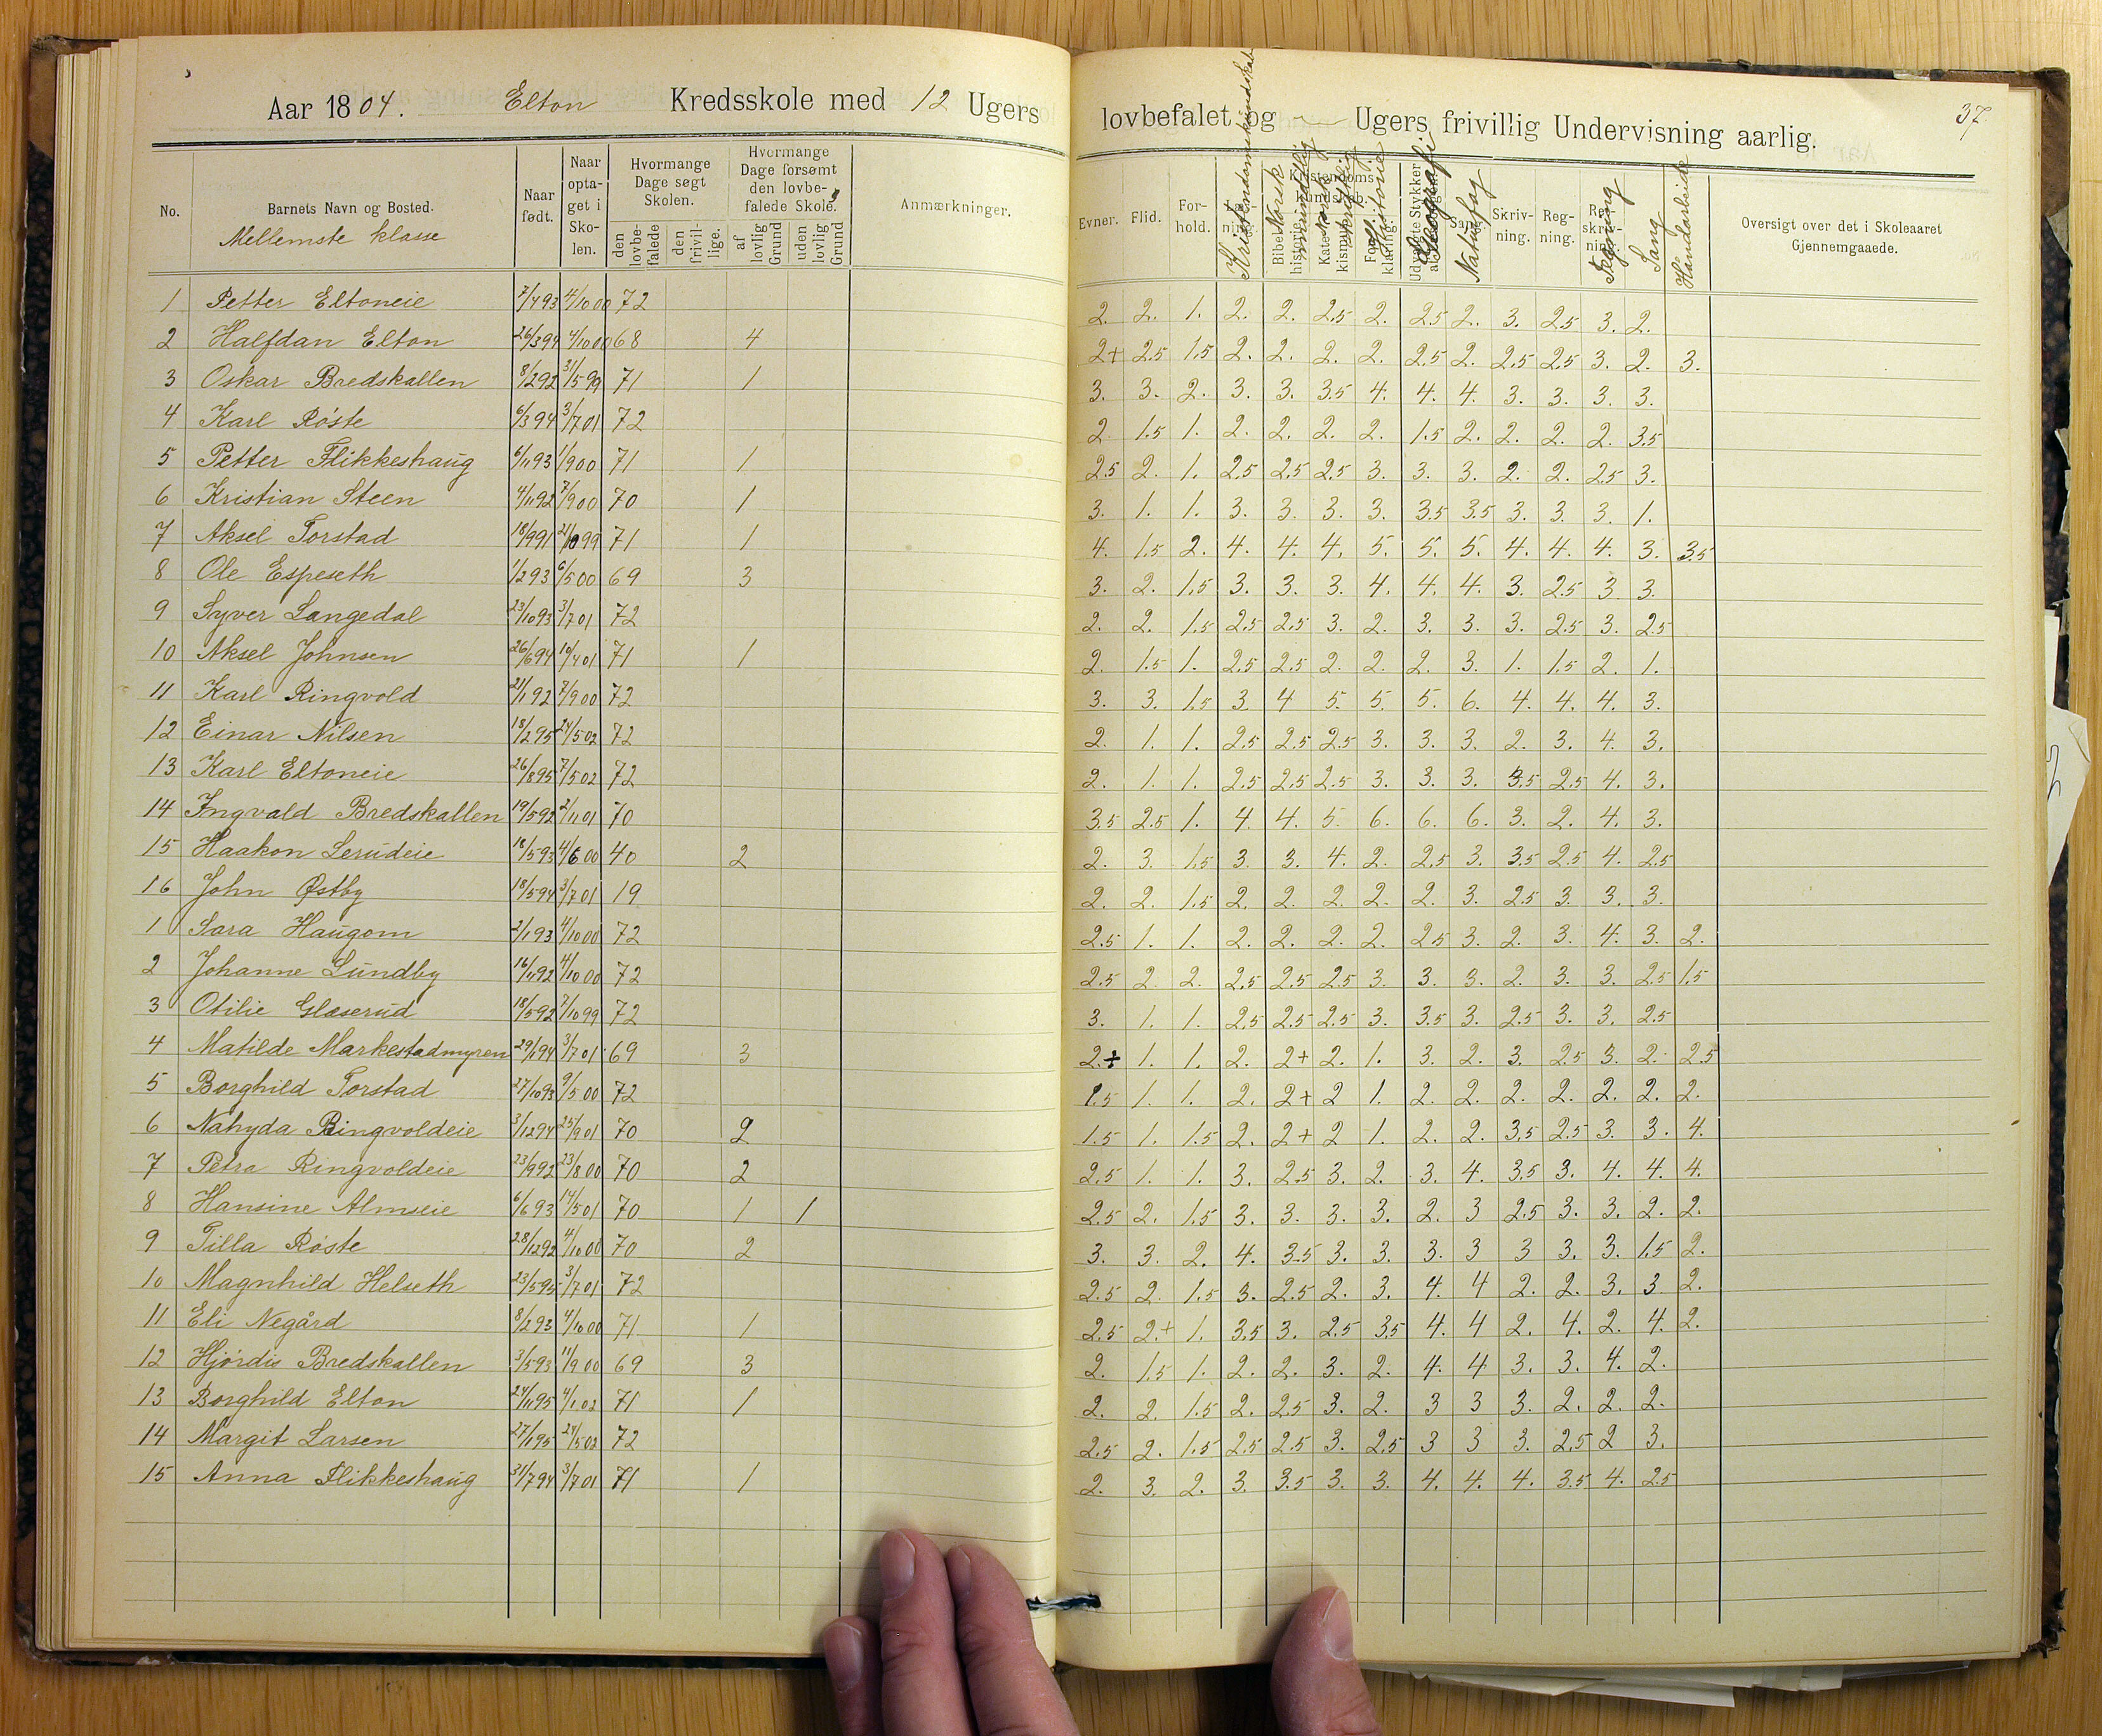 Aar 1804. Elton Kredsskole med 12 Ugers lovbefalet og — Ugers frivillig Undervisning aarlig. 37
No. Barnets Navn og Bosted. Naar født. Naar optaget i Skolen. Hvormange Dage søgt Skolen. Hvormange Dage forsømt den lovbefalede Skole. Anmærkninger. Evner. Flid. Forhold. Skrivning. Regning. Oversigt over det i Skoleaaret Gjennemgaaede.
Mellemste klasse den lovbefalede den frivillige. af lovlig Grund uden lovlig Grund Kristendomskundskab Norsk mundtlig Norsk skriftlig Historie Geografi Naturfag Tegning Sang Haandarbeide
1 Petter Eltoneie 7/4 93 4/10 00 72 2. 2. 1. 2. 2. 2.5 2. 2.5 2. 3. 2.5 3. 2.
2 Halfdan Elton 26/3 94 4/10 00 68 4 2+ 2.5 1.5 2. 2. 2. 2. 2.5 2. 2.5 2.5 3. 2. 3.
3 Oskar Bredskallen 8/2 92 31/5 99 71 1 3. 3. 2. 3. 3. 3.5 4. 4. 4. 3. 3. 3. 3.
4 Karl Røste 6/3 94 3/7 01 72 2 1.5 1. 2. 2. 2. 2. 1.5 2. 2. 2. 2. 3.5
5 Petter Flikkeshaug 6/11 93 1/9 00 71 1 2.5 2. 1. 2.5 2.5 2.5 3. 3. 3. 2. 2. 2.5 3.
6 Kristian Steen 4/11 92 7/9 00 70 1 3. 1. 1. 3. 3. 3. 3. 3.5 3.5 3. 3. 3. 1.
7 Aksel Torstad 18/9 91 21/10 99 71 1 4. 1.5 2. 4. 4. 4. 5. 5. 5. 4. 4. 4. 3. 3.5
8 Ole Espeseth 1/2 93 6/5 00 69 3 3. 2. 1.5 3. 3. 3. 4. 4. 4. 3. 2.5 3 3.
9 Syver Langedal 23/10 93 3/7 01 72 2. 2. 1.5 2.5 2.5 3. 2. 3. 3. 3. 2.5 3. 2.5
10 Aksel Johnsen 26/6 94 10/4 01 71 1 2. 1.5 1. 2.5 2.5 2. 2. 2. 3. 1. 1.5 2. 1.
11 Karl Ringvold 21/1 92 7/9 00 72 3. 3. 1.5 3. 4 5. 5. 5. 6. 4. 4. 4. 3.
12 Einar Nilsen 18/2 95 24/5 02 72 2. 1. 1. 2.5 2.5 2.5 3. 3. 3. 2. 3. 4. 3.
13 Karl Eltoneie 26/8 95 7/5 02 72 2. 1. 1. 2.5 2.5 2.5 3. 3. 3. 3.5 2.5 4. 3.
14 Ingvald Bredskallen 19/5 92 2/11 01 70 3.5 2.5 1. 4. 4. 5. 6. 6. 6. 3. 2. 4. 3.
15 Haakon Lerudeie 18/5 93 4/6 00 40 2 2. 3. 1.5 3. 3. 4. 2. 2.5 3. 3.5 2.5 4. 2.5
16 John Østby 18/5 94 3/7 01 19 2. 2. 1.5 2. 2. 2. 2. 2. 3. 2.5 3. 3. 3.
1 Sara Haugom 2/1 93 4/10 00 72 2.5 1. 1. 2. 2. 2. 2. 2.5 3. 2. 3. 4. 3. 2.
2 Johanne Lundby 16/11 92 4/10 00 72 2.5 2 2. 2.5 2.5 2.5 3. 3. 3. 2. 3. 3. 2.5 1.5
3 Otilie Glæserud 18/5 92 7/10 99 72 3. 1. 1. 2.5 2.5 2.5 3. 3.5 3. 2.5 3. 3. 2.5
4 Matilde Markestadmyren 29/1 94 3/7 01 69 3 2.+ 1. 1. 2. 2+ 2. 1. 3. 2. 3. 2.5 3. 2. 2.5
5 Borghild Torstad 27/10 93 9/5 00 72 1.5 1. 1. 2. 2+ 2 1. 2. 2. 2. 2. 2. 2. 2.
6 Nahyda Ringvoldeie 3/12 94 25/9 01 70 2 1.5 1. 1.5 2. 2+ 2 1. 2. 2. 3.5 2.5 3. 3. 4.
7 Petra Ringvoldeie 23/9 92 23/8 00 70 2 2.5 1. 1. 3. 2.5 3. 2. 3. 4. 3.5 3. 4. 4. 4.
8 Hansine Almseie 6/6 93 14/5 01 70 1 1 2.5 2. 1.5 3. 3. 3. 3. 2. 3 2.5 3. 3. 2. 2.
9 Tilla Røste 28/12 92 4/10 00 70 2 3. 3. 2. 4. 3.5 3. 3. 3. 3 3 3. 3. 1.5 2.
10 Magnhild Helseth 23/5 95 3/7 01 72 2.5 2 1.5 3. 2.5 2. 3. 4. 4 2. 2. 3. 3 2.
11 Eli Negård 8/2 93 4/10 00 71 1 2.5 2.+ 1. 3.5 3. 2.5 3.5 4. 4 2. 4. 2. 4. 2.
12 Hjørdis Bredskallen 3/5 93 11/9 00 69 3 2. 1.5 1. 2. 2. 3. 2. 4. 4 3. 3. 4. 2.
13 Borghild Elton 24/11 95 4/1 02 71 1 2. 2. 1.5 2. 2.5 3. 2. 3 3 3. 2. 2. 2.
14 Margit Larsen 27/1 95 24/5 02 72 2.5 2. 1.5 2.5 2.5 3. 2.5 3 3 3. 2.5 2 3.
15 Anna Flikkeshaug 31/7 94 3/7 01 71 1 2. 3. 2. 3. 3.5 3. 3. 4. 4. 4. 3.5 4. 2.5